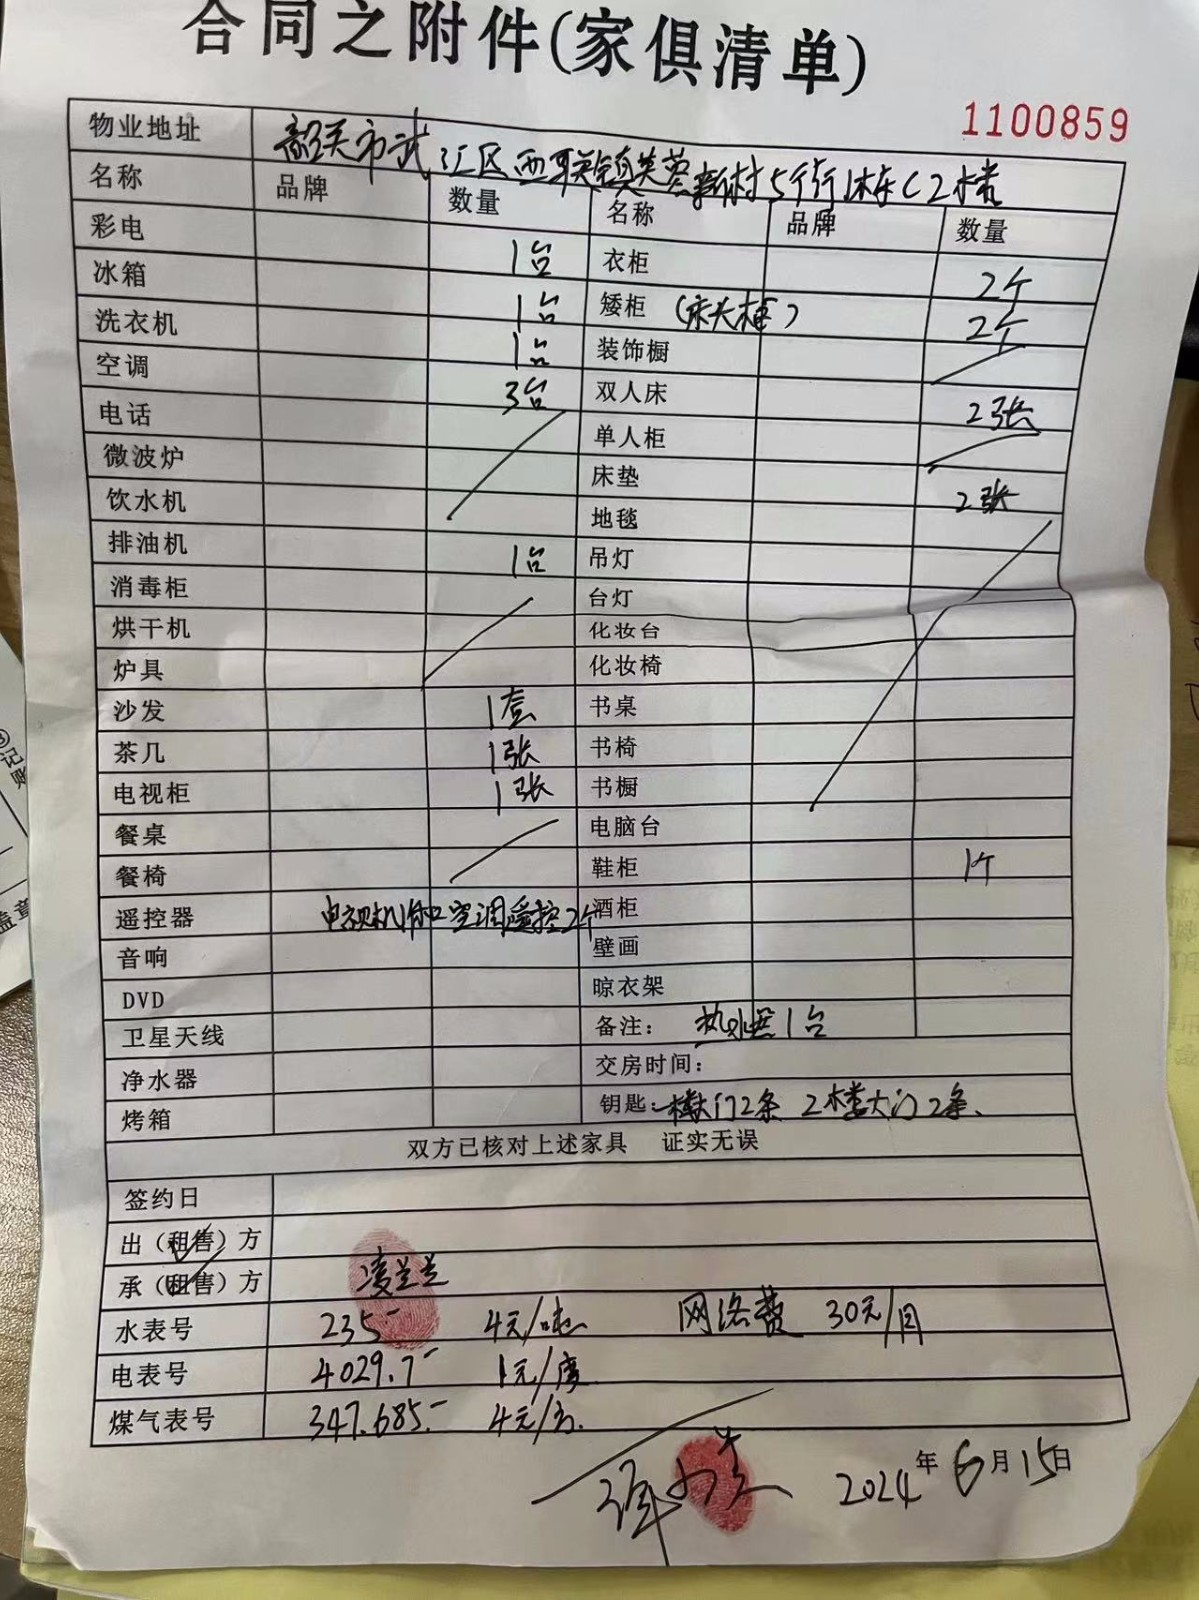 合同之附件(家俱清单)
1100859
物业地址 韶关市武江区西联镇芙蓉新村5街行1栋C2楼
名称 品牌 数量 名称 品牌 数量
彩电 1台 衣柜 2个
冰箱 1台 矮柜 (床头柜) 2个
洗衣机 1台 装饰橱
空调 3台 双人床 2张
电话 单人柜
微波炉 床垫 2张
饮水机 地毯
排油机 1台 吊灯
消毒柜 台灯
烘干机 化妆台
炉具 化妆椅
沙发 1套 书桌
茶几 1张 书椅
电视柜 1张 书橱
餐桌 电脑台
餐椅 鞋柜 1个
遥控器 电视机和空调遥控2个 酒柜
音响 壁画
DVD 晾衣架
卫星天线 备注: 热水器1台
净水器 交房时间:
烤箱 钥匙: 楼大门2条 2楼大门2条、
双方已核对上述家具 证实无误
签约日
出(租售)方
承(租售)方 凌兰兰
水表号 235- 4元/吨 网络费 30元/月
电表号 4029.7- 1元/度
煤气表号 347.685.- 4元/方.
2024年6月15日